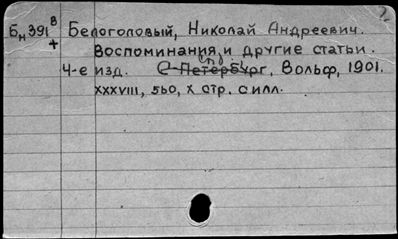 Бн391в Белоголовый, Николай Андреевич.
+ Воспоминания и другие статьи.
4-е изд. С-Петербург, Вольф, 1901.
XXXVIII, 560, X стр. с илл.